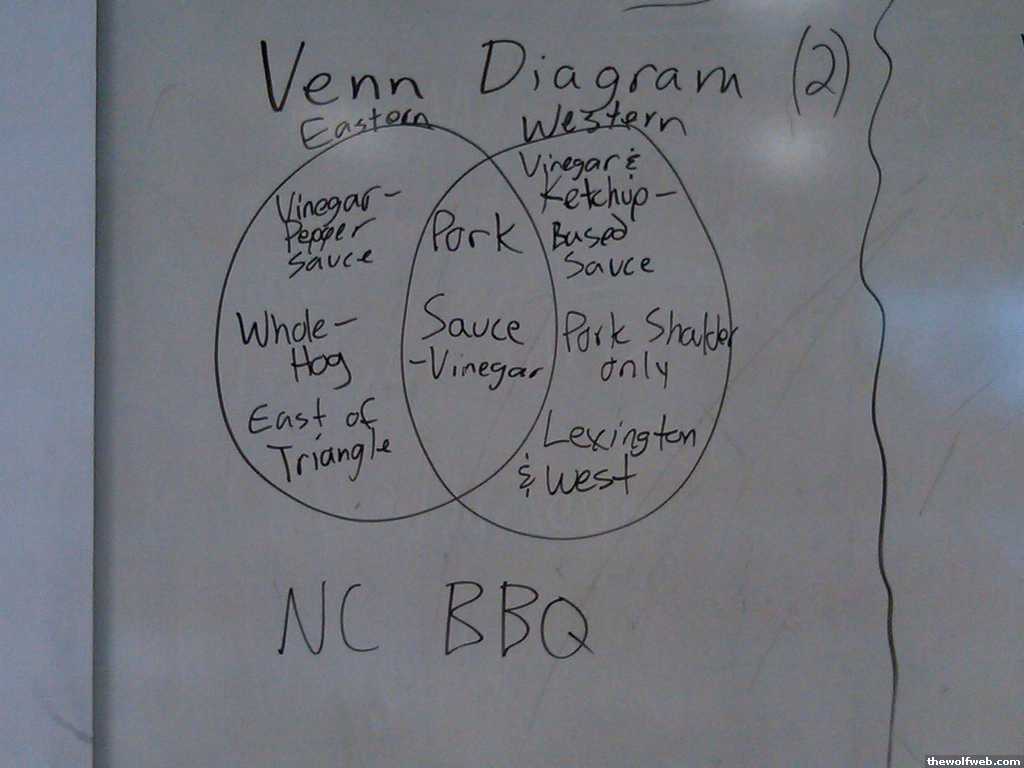 Venn Diagram (2)
Eastern
Western
Vinegar-
Pepper
Sauce
Whole-
Hog
East of
Triangle
Pork
Sauce
-Vinegar
Vinegar &
Ketchup-
Based
Sauce
Pork Shoulder
only
Lexington
& West
NC BBQ
thewolfweb.com